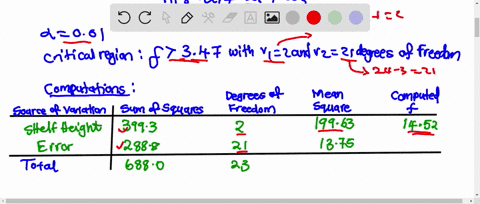 α = 0.01
critical region : f > 3.47 with v₁=2 and v₂=21 degrees of freedom
24-3=21
Computations:
Source of Variation Sum of Squares Degrees of Freedom Mean Square Computed f
Shelf Height 399.3 2 199.63 14.52
Error 288.8 21 13.75
Total 688.0 23